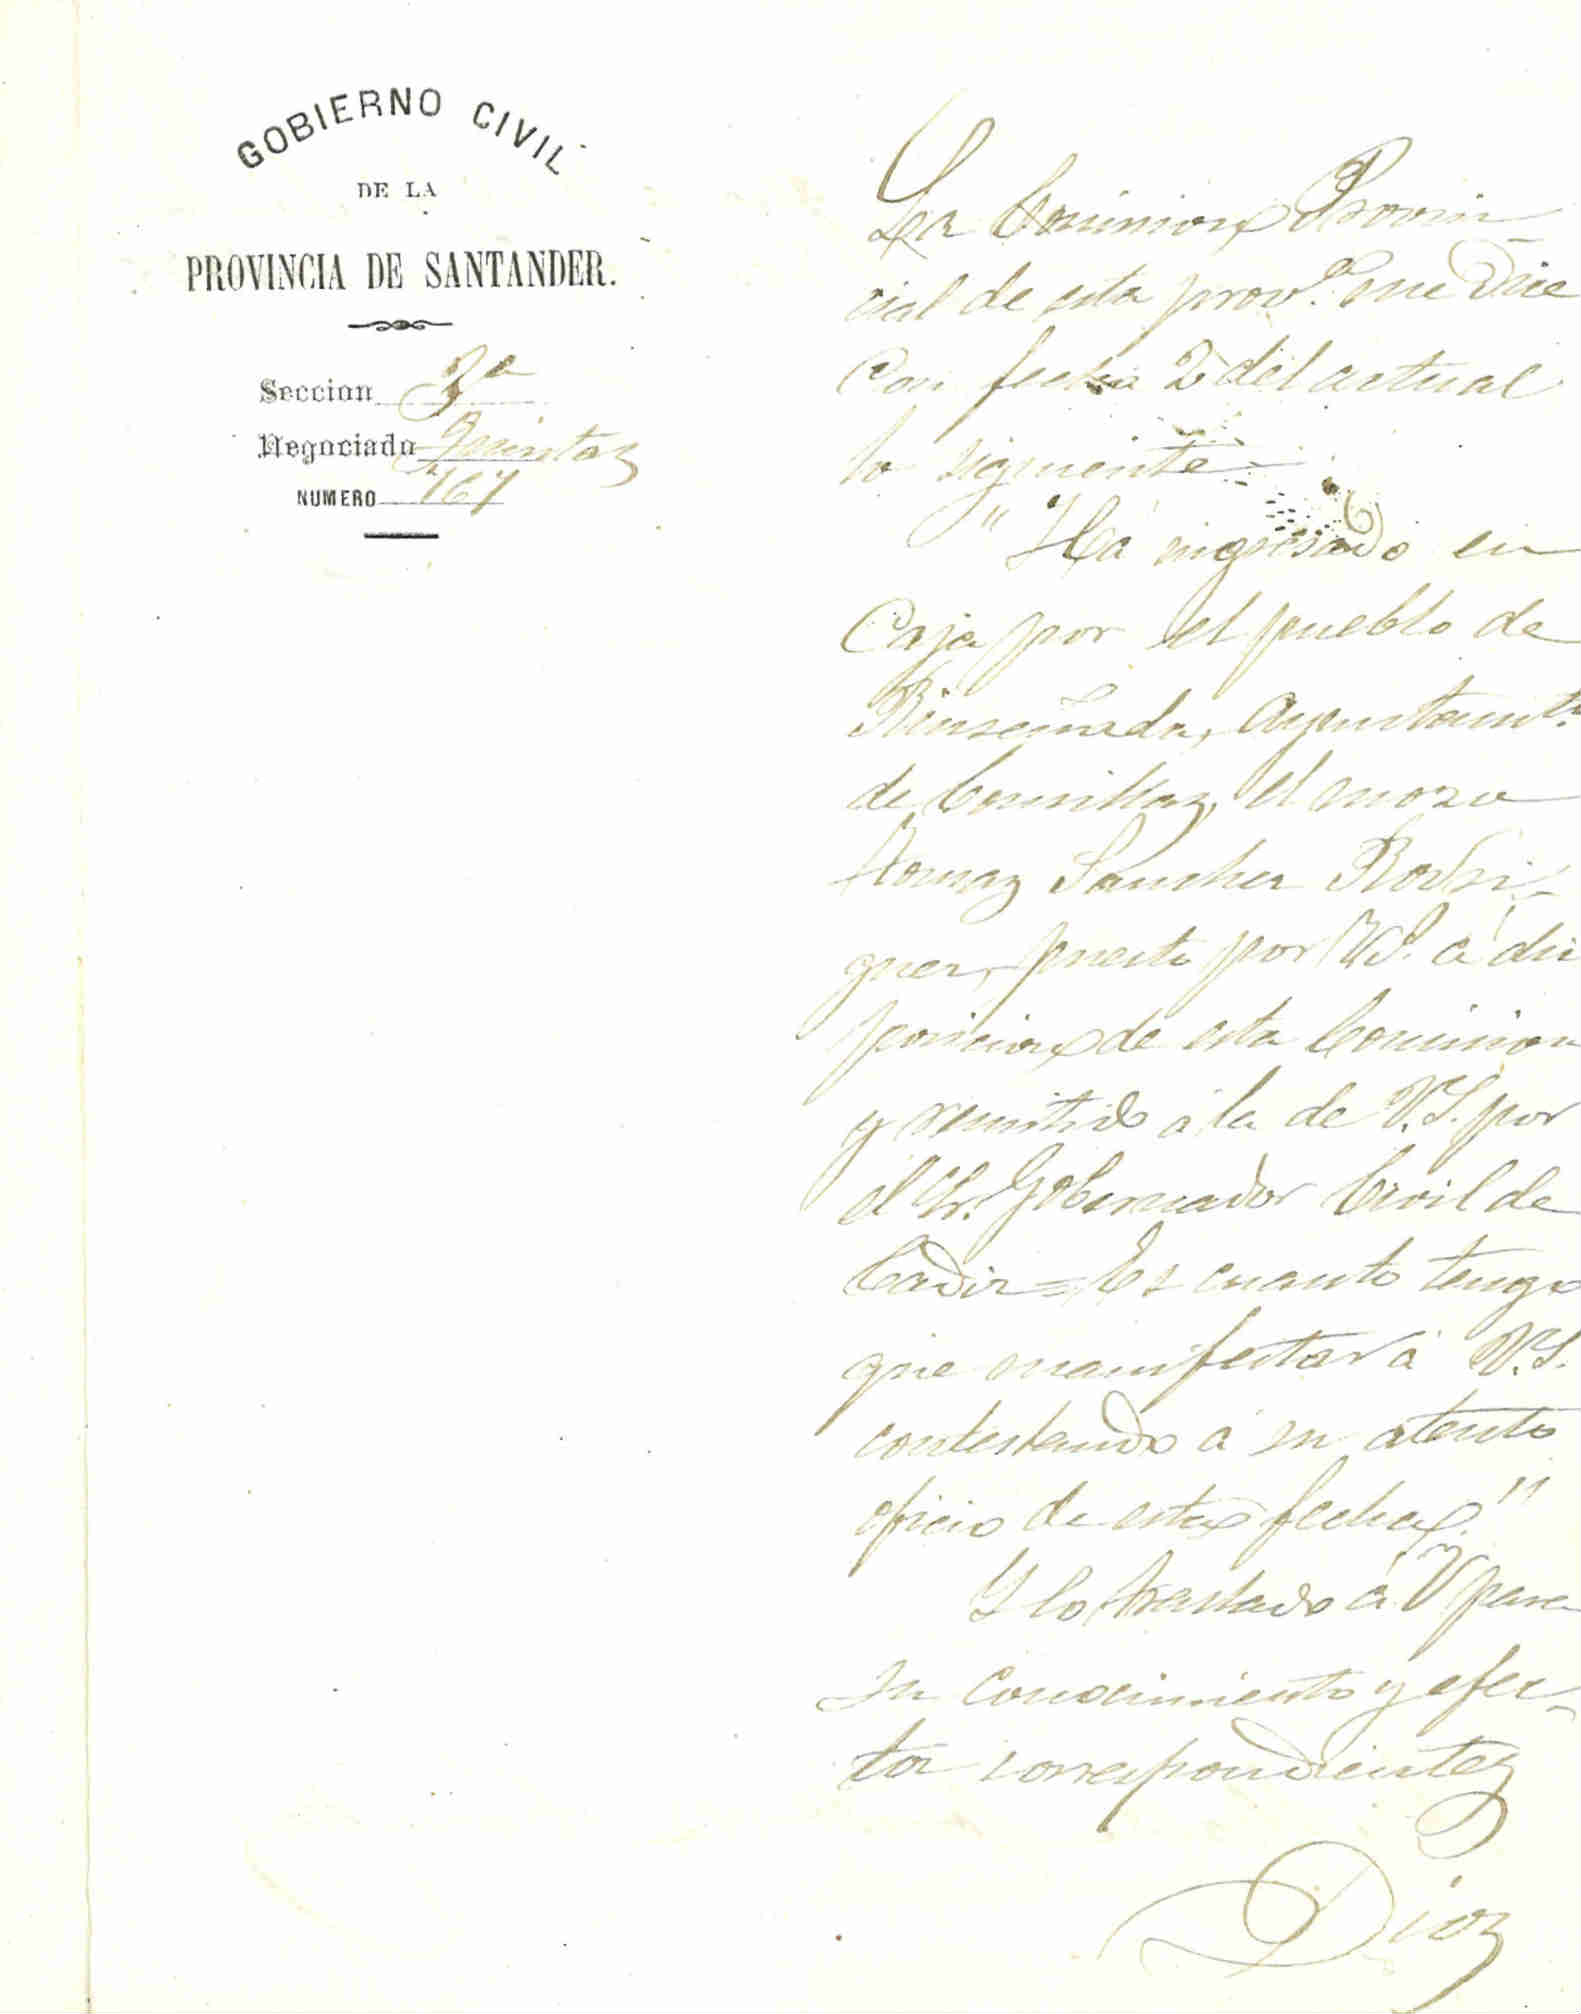 GOBIERNO CIVIL
DE LA
PROVINCIA DE SANTANDER.
Seccion 3ª
Negociado Quintas
NUMERO 767
La Comision Provin-
cial de esta prov.ª me dice
con fecha 2 del actual
lo siguiente =
"Há ingresado en
Caja por el pueblo de
Ruiseñada, Ayuntamt.º
de Comillas, el mozo
Tomas Sanchez Rodri-
guez, puesto por V.S. á dis
posicion de esta Comision
y remitido á la de V.S. por
el Sr. Gobernador Civil de
Cadiz = Es cuanto tengo
que manifestar á V.S.
contestando á su atento
oficio de esta fecha."
Y lo traslado á V para
su conocimiento y efec-
tos correspondientes
Dios